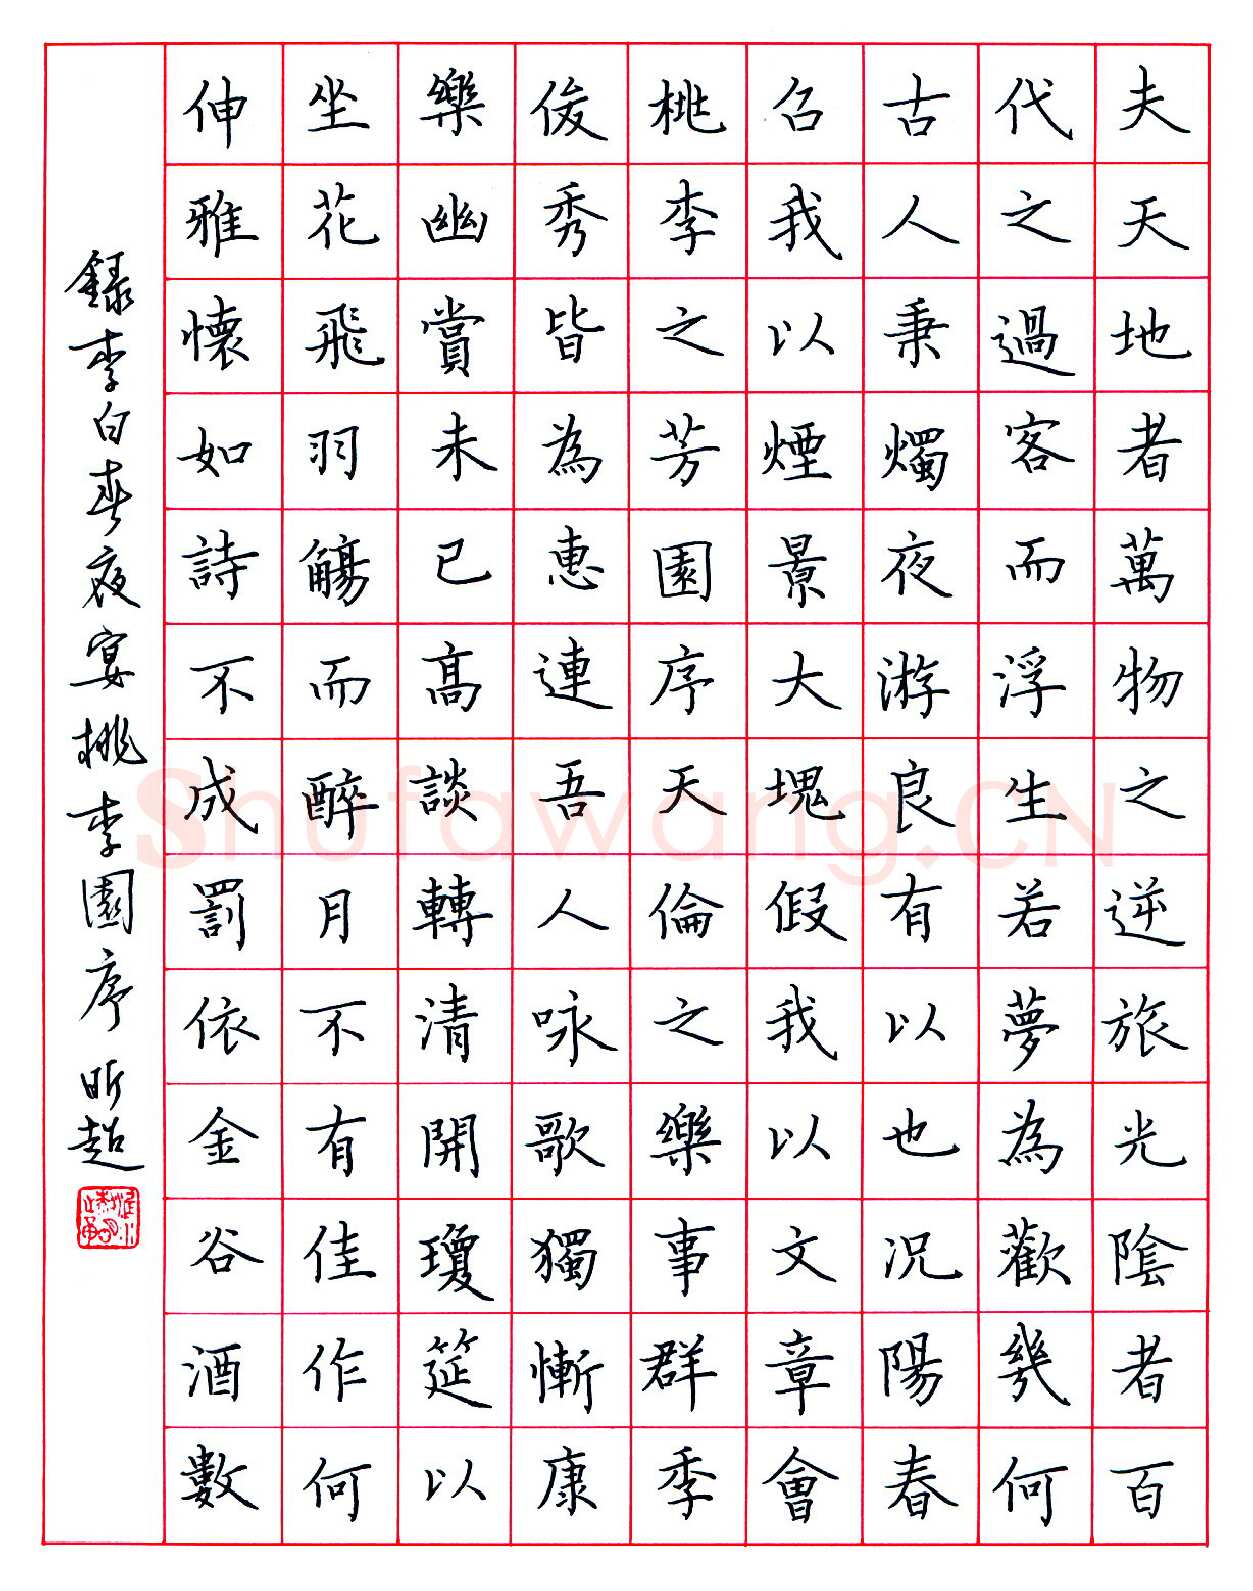 夫天地者萬物之逆旅光陰者百
代之過客而浮生若夢為歡幾何
古人秉燭夜游良有以也況陽春
召我以煙景大塊假我以文章會
桃李之芳園序天倫之樂事群季
俊秀皆為惠連吾人咏歌獨慚康
樂幽賞未已高談轉清開瓊筵以
坐花飛羽觴而醉月不有佳作何
伸雅懷如詩不成罰依金谷酒數
錄李白春夜宴桃李園序 昕超
Shufawang.CN